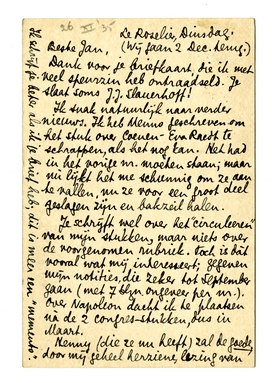 26 XI 35
Le Roselier, Dinsdag.
Beste Jan, (Wij gaan 2 Dec. henen.)
Dank voor je briefkaart, die ik met
veel speurzin heb ontraadseld. Je
slaat soms J.J. Slauerhoff!
Ik snak natuurlijk naar verder
nieuws. Ik heb Menno geschreven om
het stuk over Coenen - Van Raedt te
schrappen, als het nog kan. Het had
in het vorige nr. moeten staan; maar
nu lijkt het me schunnig om ze aan
te vallen, nu ze voor een groot deel
geslagen zijn en bakzeil halen.
Je schrijft wel over het "circuleeren"
van mijn stukken, maar niets over
de voorgenomen rubriek. Toch is dàt
vooral wat mij interesseert; gegeven
mijn notities, die zeker tot September
gaan (met 7 blzn ongeveer per nr.).
Over Napoleon dacht ik te plaatsen
na de 2 congres-stukken, dus in
Maart.
Menny (die ze nu heeft) zal de goede,
door mij geheel herziene, lezing van
Ik schrijf je beter, als ik je brief heb; dit is meer een "memento".